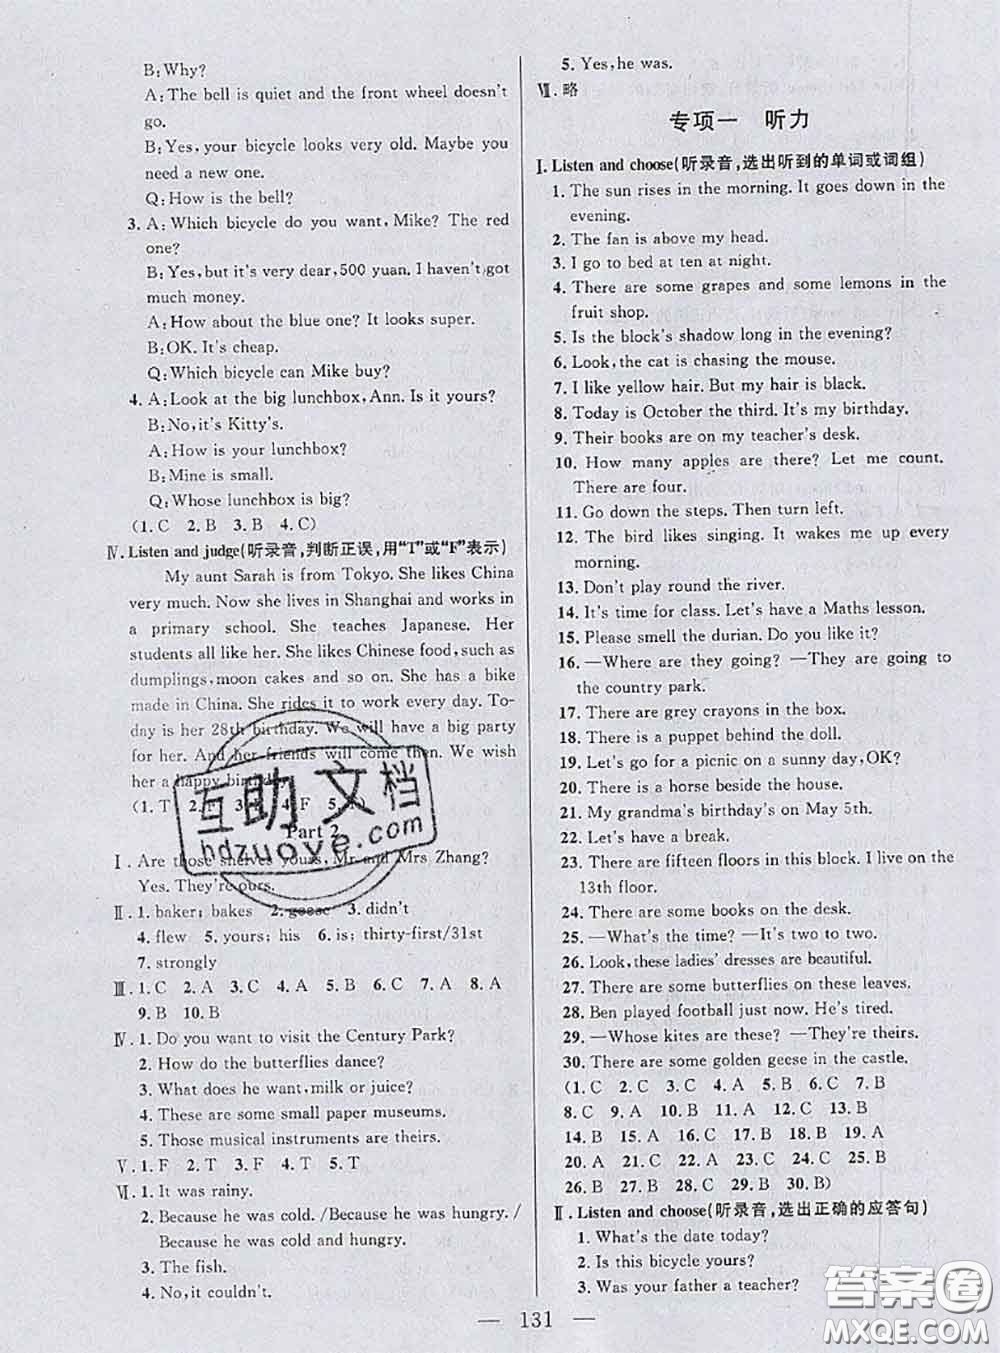 B:Why?
A:The bell is quiet and the front wheel doesn't
go.
B:Yes,your bicycle looks very old. Maybe you
need a new one.
Q:How is the bell?
3. A:Which bicycle do you want, Mike? The red
one?
B:Yes,but it's very dear,500 yuan. I haven't got
much money.
A:How about the blue one? It looks super.
B:OK. It's cheap.
Q:Which bicycle can Mike buy?
4. A:Look at the big lunchbox,Ann. Is it yours?
B:No,it's Kitty's.
A:How is your lunchbox?
B:Mine is small.
Q:Whose lunchbox is big?
(1. C 2. B 3. B 4. C)
Ⅳ. Listen and judge(听录音,判断正误,用“T”或“F”表示)
My aunt Sarah is from Tokyo. She likes China
very much. Now she lives in Shanghai and works in
a primary school. She teaches Japanese. Her
students all like her. She likes Chinese food,such as
dumplings,moon cakes and so on. She has a bike
made in China. She rides it to work every day. To-
day is her 28th birthday. We will have a big party
for her. And her friends will come then. We wish
her a happy
(1. T 4. F
Part 2
Ⅰ. Are those shelves yours, Mr and Mrs Zhang?
Yes. They're ours.
Ⅱ. 1. baker; bakes 2. geese 3. didn't
4. flew 5. yours; his 6. is; thirty-first/31st
7. strongly
Ⅲ. 1. C 2. A 3. C 4. B 5. B 6. C 7. A 8. A
9. B 10. B
Ⅳ. 1. Do you want to visit the Century Park?
2. How do the butterflies dance?
3. What does he want,milk or juice?
4. These are some small paper museums.
5. Those musical instruments are theirs.
Ⅴ. 1. F 2. T 3. F 4. T 5. T
Ⅵ. 1. It was rainy.
2. Because he was cold. /Because he was hungry. /
Because he was cold and hungry.
3. The fish.
4. No,it couldn't.
5. Yes,he was.
Ⅶ. 略
专项一 听力
Ⅰ. Listen and choose(听录音,选出听到的单词或词组)
1. The sun rises in the morning. It goes down in the
evening.
2. The fan is above my head.
3. I go to bed at ten at night.
4. There are some grapes and some lemons in the
fruit shop.
5. Is the block's shadow long in the evening?
6. Look, the cat is chasing the mouse.
7. I like yellow hair. But my hair is black.
8. Today is October the third. It's my birthday.
9. Their books are on my teacher's desk.
10. How many apples are there? Let me count.
There are four.
11. Go down the steps. Then turn left.
12. The bird likes singing. It wakes me up every
morning.
13. Don't play round the river.
14. It's time for class. Let's have a Maths lesson.
15. Please smell the durian. Do you like it?
16. —Where are they going? —They are going to
the country park.
17. There are grey crayons in the box.
18. There is a puppet behind the doll.
19. Let's go for a picnic on a sunny day,OK?
20. There is a horse beside the house.
21. My grandma's birthday's on May 5th.
22. Let's have a break.
23. There are fifteen floors in this block. I live on the
13th floor.
24. There are some books on the desk.
25. —What's the time? —It's two to two.
26. Look,these ladies' dresses are beautiful.
27. There are some butterflies on these leaves.
28. Ben played football just now. He's tired.
29. —Whose kites are these? —They're theirs.
30. There are some golden geese in the castle.
(1. C 2. C 3. C 4. A 5. B 6. C 7. B
8. C 9. A 10. A 11. B 12. A 13. C
14. B 15. A 16. C 17. B 18. B 19. A
20. A 21. C 22. A 23. A 24. B 25. B
26. B 27. B 28. C 29. B 30. B)
Ⅱ. Listen and choose(听录音,选出正确的应答句)
1. What's the date today?
2. Is this bicycle yours?
3. Was your father a teacher?
— 131 —
互助文档
hdzuoye.com
答案圈
MXQE.COM